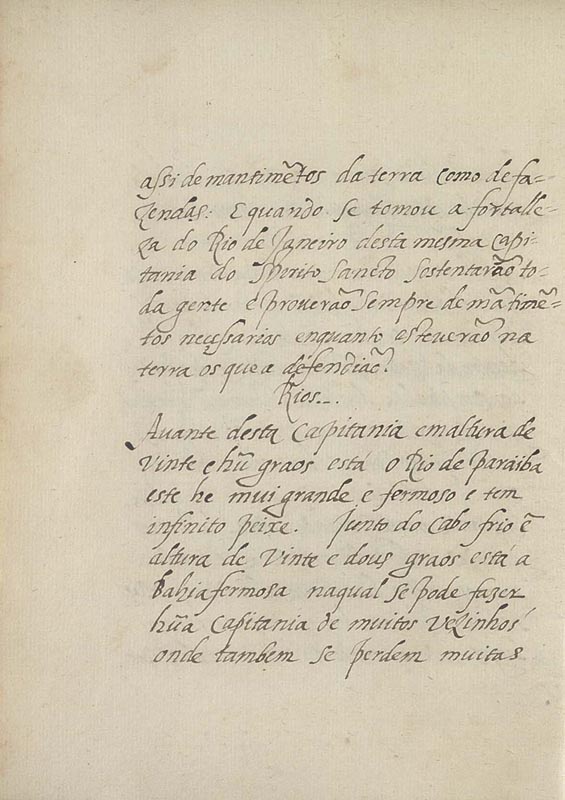 assi de mantimẽtos da terra como de fa-
zendas: E quando se tomou a fortalle-
za do Rio de Janeiro desta mesma capi-
tania do Spirito Sancto sostentarão to-
da gente e proverão sempre de mãtimẽ-
tos neçessarios enquanto esteverão na
terra os que a defendião.
Rios._.
Avante desta Capitania em altura de
vinte e hũ graos está o Rio de paraiba
este he mui grande e fermoso e tem
infinito peixe. Junto do Cabo frio ẽ
altura de vinte e dous graos está a
Bahia fermosa na qual se pode fazer
hũa Capitania de muitos vezinhos
onde tambem se perdem muitas